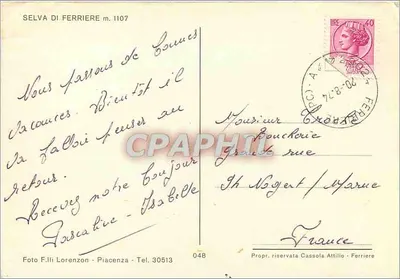 SELVA DI FERRIERE m. 1107
Nous passons de bonnes
vacances. Bientôt il
va falloir penser au
retour.
Recevez notre bonjour
Pascaline - Isabelle
Foto F.lli Lorenzon - Piacenza - Tel. 30513
048
40
29024 FERRIERE (PC)
20-8-74
Monsieur
Boucherie
Grande rue
94 Nogent / Marne
France
Propr. riservata Cassola Attilio - Ferriere
CPAPHIL